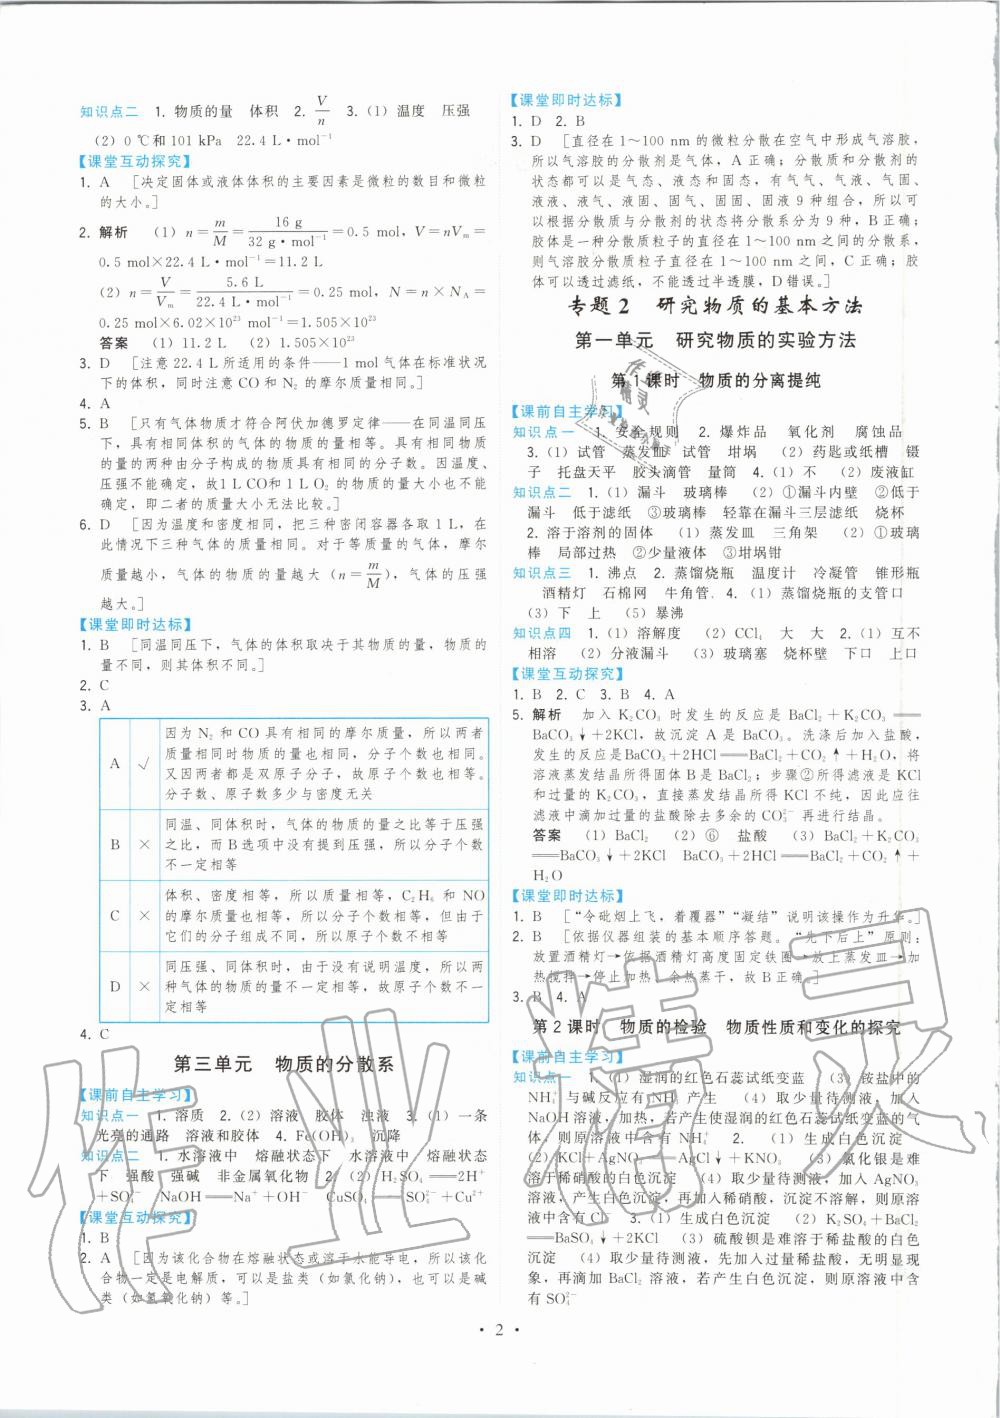 知识点二 1. 物质的量 体积 2. V/n 3. (1) 温度 压强
(2) 0 ℃和101 kPa 22.4 L·mol⁻¹
【课堂互动探究】
1. A [决定固体或液体体积的主要因素是微粒的数目和微粒
的大小。]
2. 解析 (1) n=m/M=16 g/32 g·mol⁻¹=0.5 mol, V=nVₘ=
0.5 mol×22.4 L·mol⁻¹=11.2 L
(2) n=V/Vₘ=5.6 L/22.4 L·mol⁻¹=0.25 mol, N=n×N_A=
0.25 mol×6.02×10²³ mol⁻¹=1.505×10²³
答案 (1) 11.2 L (2) 1.505×10²³
3. D [注意 22.4 L 所适用的条件——1 mol 气体在标准状况
下的体积,同时注意 CO 和 N₂ 的摩尔质量相同。]
4. A
5. B [只有气体物质才符合阿伏加德罗定律——在同温同压
下,具有相同体积的气体的物质的量相等。具有相同物质
的量的两种由分子构成的物质具有相同的分子数。因温度、
压强不能确定,故1 L CO和1 L O₂ 的物质的量大小也不能
确定,即二者的质量大小无法比较。]
6. D [因为温度和密度相同,把三种密闭容器各取 1 L,在
此情况下三种气体的质量相同。对于等质量的气体,摩尔
质量越小,气体的物质的量越大 (n=m/M),气体的压强
越大。]
【课堂即时达标】
1. B [同温同压下,气体的体积取决于其物质的量,物质的
量不同,则其体积不同。]
2. C
3. A
A √ 因为 N₂ 和 CO 具有相同的摩尔质量,所以两者
质量相同时物质的量也相同,分子个数也相同。
又因两者都是双原子分子,故原子个数也相等。
分子数、原子数多少与密度无关
B × 同温、同体积时,气体的物质的量之比等于压强
之比,而 B 选项中没有提到压强,所以原子个数
不一定相等
C × 体积、密度相等,所以质量相等,C₂H₆ 和 NO
的摩尔质量也相等,所以分子个数相等,但由于
它们的分子组成不同,所以原子个数不相等
D × 同压强、同体积时,由于没有说明温度,所以两
种气体的物质的量不一定相等,故原子个数不一
定相等
4. C
第三单元 物质的分散系
【课前自主学习】
知识点一 1. 溶质 2. (2) 溶液 胶体 浊液 3. (1) 一条
光亮的通路 溶液和胶体 4. Fe(OH)₃ 沉降
知识点二 1. 水溶液中 熔融状态下 水溶液中 熔融状态
下 强酸 强碱 非金属氧化物 2. (2) H₂SO₄══2H⁺
+SO₄²⁻ NaOH══Na⁺+OH⁻ CuSO₄══SO₄²⁻+Cu²⁺
【课堂互动探究】
1. B
2. A [因为该化合物在熔融状态或溶于水能导电,所以该化
合物一定是电解质,可以是盐类(如氯化钠),也可以是碱
类(如氢氧化钠)等。]
【课堂即时达标】
1. D 2. B
3. D [直径在 1～100 nm 的微粒分散在空气中形成气溶胶,
所以气溶胶的分散剂是气体,A 正确;分散质和分散剂的
状态都可以是气态、液态和固态,有气气、气液、气固、
液液、液气、液固、固气、固固、固液 9 种组合,所以可
以根据分散质与分散剂的状态将分散系分为 9 种,B 正确;
胶体是一种分散质粒子的直径在 1～100 nm 之间的分散系,
则气溶胶分散质粒子直径在 1～100 nm 之间,C 正确;胶
体可以透过滤纸,不能透过半透膜,D 错误。]
专题 2 研究物质的基本方法
第一单元 研究物质的实验方法
第 1 课时 物质的分离提纯
【课前自主学习】
知识点一 1. 安全规则 2. 爆炸品 氧化剂 腐蚀品
3. (1) 试管 蒸发皿 试管 坩埚 (2) 药匙或纸槽 镊
子 托盘天平 胶头滴管 量筒 4. (1) 不 (2) 废液缸
知识点二 1. (1) 漏斗 玻璃棒 (2) ①漏斗内壁 ②低于
漏斗 低于滤纸 ③玻璃棒 轻靠在漏斗三层滤纸 烧杯
2. 溶于溶剂的固体 (1) 蒸发皿 三角架 (2) ①玻璃
棒 局部过热 ②少量液体 ③坩埚钳
知识点三 1. 沸点 2. 蒸馏烧瓶 温度计 冷凝管 锥形瓶
酒精灯 石棉网 牛角管. 4. (1) 蒸馏烧瓶的支管口
(3) 下 上 (5) 暴沸
知识点四 1. (1) 溶解度 (2) CCl₄ 大 大 2. (1) 互不
相溶 (2) 分液漏斗 (3) 玻璃塞 烧杯壁 下口 上口
【课堂互动探究】
1. B 2. C 3. B 4. A
5. 解析 加入 K₂CO₃ 时发生的反应是 BaCl₂+K₂CO₃══
BaCO₃↓+2KCl,故沉淀 A 是 BaCO₃。洗涤后加入盐酸,
发生的反应是BaCO₃+2HCl══BaCl₂+CO₂↑+H₂O,将
溶液蒸发结晶所得固体 B 是 BaCl₂;步骤②所得滤液是 KCl
和过量的 K₂CO₃,直接蒸发结晶所得 KCl 不纯,因此应往
滤液中滴加过量的盐酸除去多余的 CO₃²⁻ 再进行结晶。
答案 (1) BaCl₂ (2) ⑥ 盐酸 (3) BaCl₂+K₂CO₃
══BaCO₃↓+2KCl BaCO₃+2HCl══BaCl₂+CO₂↑+
H₂O
【课堂即时达标】
1. B [“令砒烟上飞,着覆器”“凝结”说明该操作为升华。]
2. B [依据仪器组装的基本顺序答题。“先下后上”原则:
放置酒精灯→依据酒精灯高度固定铁圈→放上蒸发皿→加
热搅拌→停止加热→余热蒸干,故 B 正确。]
3. B 4. A
第 2 课时 物质的检验 物质性质和变化的探究
【课前自主学习】
知识点一 1. (1) 湿润的红色石蕊试纸变蓝 (3) 铵盐中的
NH₄⁺ 与碱反应有 NH₃ 产生 (4) 取少量待测液,加入
NaOH 溶液,加热,若产生使湿润的红色石蕊试纸变蓝的气
体,则原溶液中含有 NH₄⁺ 2. (1) 生成白色沉淀
(2) KCl+AgNO₃══AgCl↓+KNO₃ (3) 氯化银是难
溶于稀硝酸的白色沉淀 (4) 取少量待测液,加入 AgNO₃
溶液,产生白色沉淀,再加入稀硝酸,沉淀不溶解,则原溶
液中含有 Cl⁻ 3. (1) 生成白色沉淀 (2) K₂SO₄+BaCl₂══
BaSO₄↓+2KCl (3) 硫酸钡是难溶于稀盐酸的白色
沉淀 (4) 取少量待测液,先加入过量稀盐酸,无明显现
象,再滴入 BaCl₂ 溶液,若产生白色沉淀,则原溶液中含
有 SO₄²⁻
· 2 ·
作业精灵